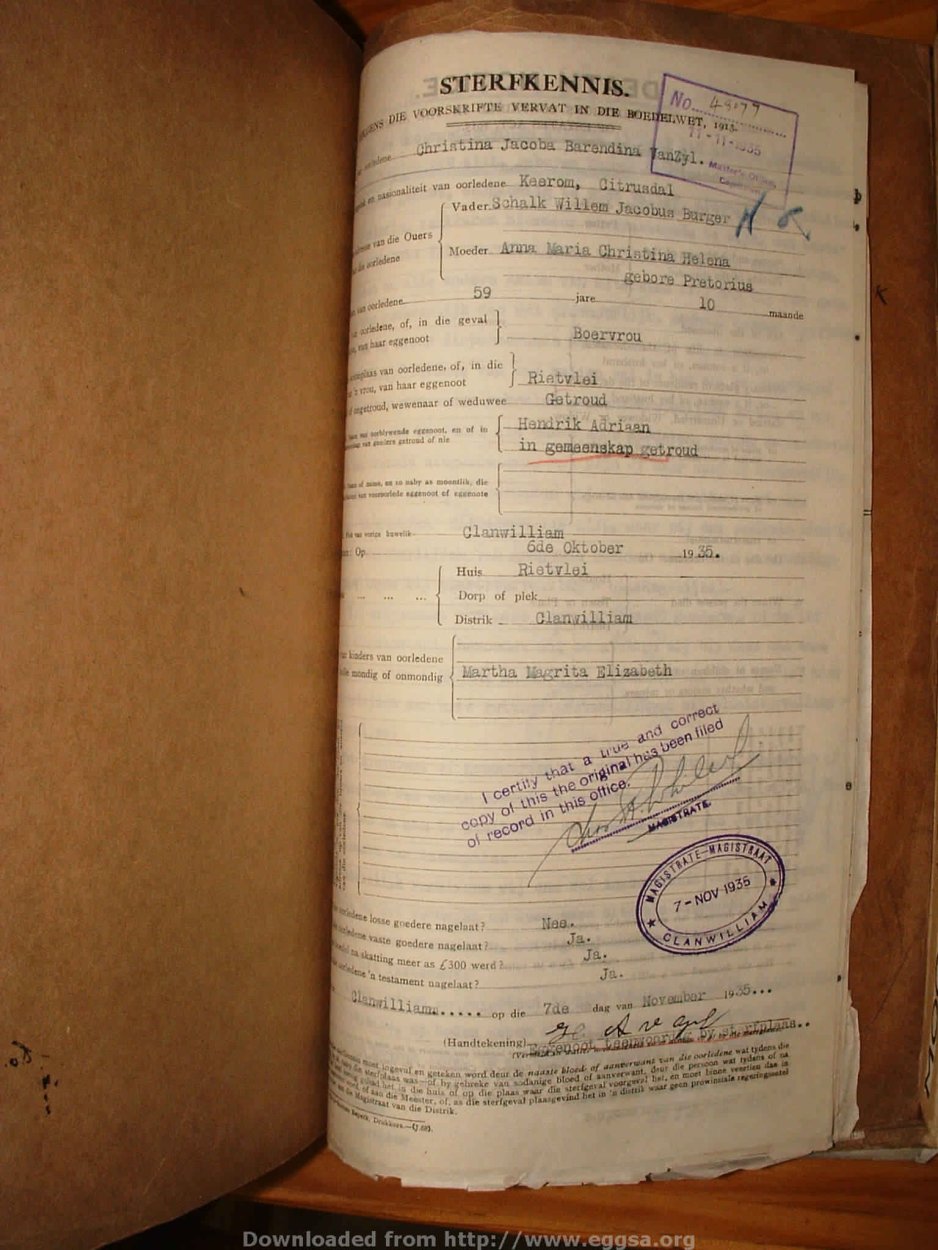 STERFKENNIS.
DIE VOORSKRIFTE VERVAT IN DIE BOEDELWET, 1913.
No. 48077
11-11-1935
Master's Office
Christina Jacoba Barendina VanZyl.
en nasionaliteit van oorledene Keerom, Citrusdal
Vader Schalk Willem Jacobus Burger
van die Ouers
die oorledene
Moeder Anna Maria Christina Helena
gebore Pretorius
van oorledene 59 jare 10 maande
oorledene, of, in die geval
van haar eggenoot
Boervrou
van oorledene, of, in die
vrou, van haar eggenoot
Rietvlei
ongetroud, wewenaar of weduwee Getroud
van oorblywende eggenoot, en of in
van goedere getroud of nie
Hendrik Adriaan
in gemeenskap getroud
of name, en so naby as moontlik, die
van vooroorlede eggenoot of eggenote
van vorige huwelik Clanwilliam
Op 6de Oktober 1935.
Huis Rietvlei
... ... ... Dorp of plek
Distrik Clanwilliam
kinders van oorledene
mondig of onmondig
Martha Magrita Elizabeth
I certify that a true and correct
copy of this the original has been filed
of record in this office.
MAGISTRATE.
MAGISTRATE-MAGISTRAAT
7-NOV 1935
CLANWILLIAM
oorledene losse goedere nagelaat? Nee.
oorledene vaste goedere nagelaat? Ja.
na skatting meer as £300 werd? Ja.
oorledene 'n testament nagelaat? Ja.
Clanwilliam..... op die 7de dag van November 1935...
(Handtekening)
Eggenoot teenwoordig by sterfplaas..
moet ingevul en geteken word deur de naaste bloed- of aanverwant van die oorledene wat tydens die
die sterfplaas was—of by gebreke van sodanige bloed of aanverwant, deur die persoon wat tydens of na
het in die huis of op die plaas waar die sterfgeval voorgeval het, en moet binne veertien dae in
of aan die Meester, of, as die sterfgeval plaasgevind het in 'n distrik waar geen provinsiale regeringsetel
die Magistraat van die Distrik.
Downloaded from http://www.eggsa.org